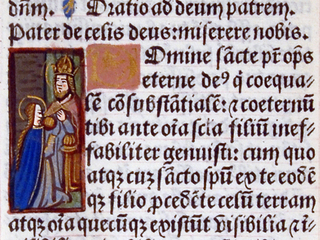 dñm. Oratio ad deum patrem.
Pater de celis deus: miserere nobis.
Domine sācte pr̄ oп̄s
eterne de⁹ q̇ coequa-
lē cōsubstātialē: ⁊ coeternū
tibi ante oīa scla filiū inef-
fabiliter genuisti: cum quo
atqꝫ cuꝫ sācto spū ex te eodē
qꝫ filio p̄cedēte celū terram
atqꝫ oīa quecūqꝫ existūt visibilia ⁊ i-